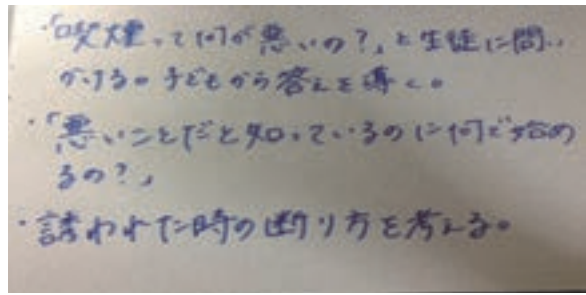 ・「喫煙って何が悪いの？」と生徒に問い
かける。子どもから答えを導く。
・「悪いことだと知っているのに何で始め
るの？」
・誘われた時の断り方を考える。